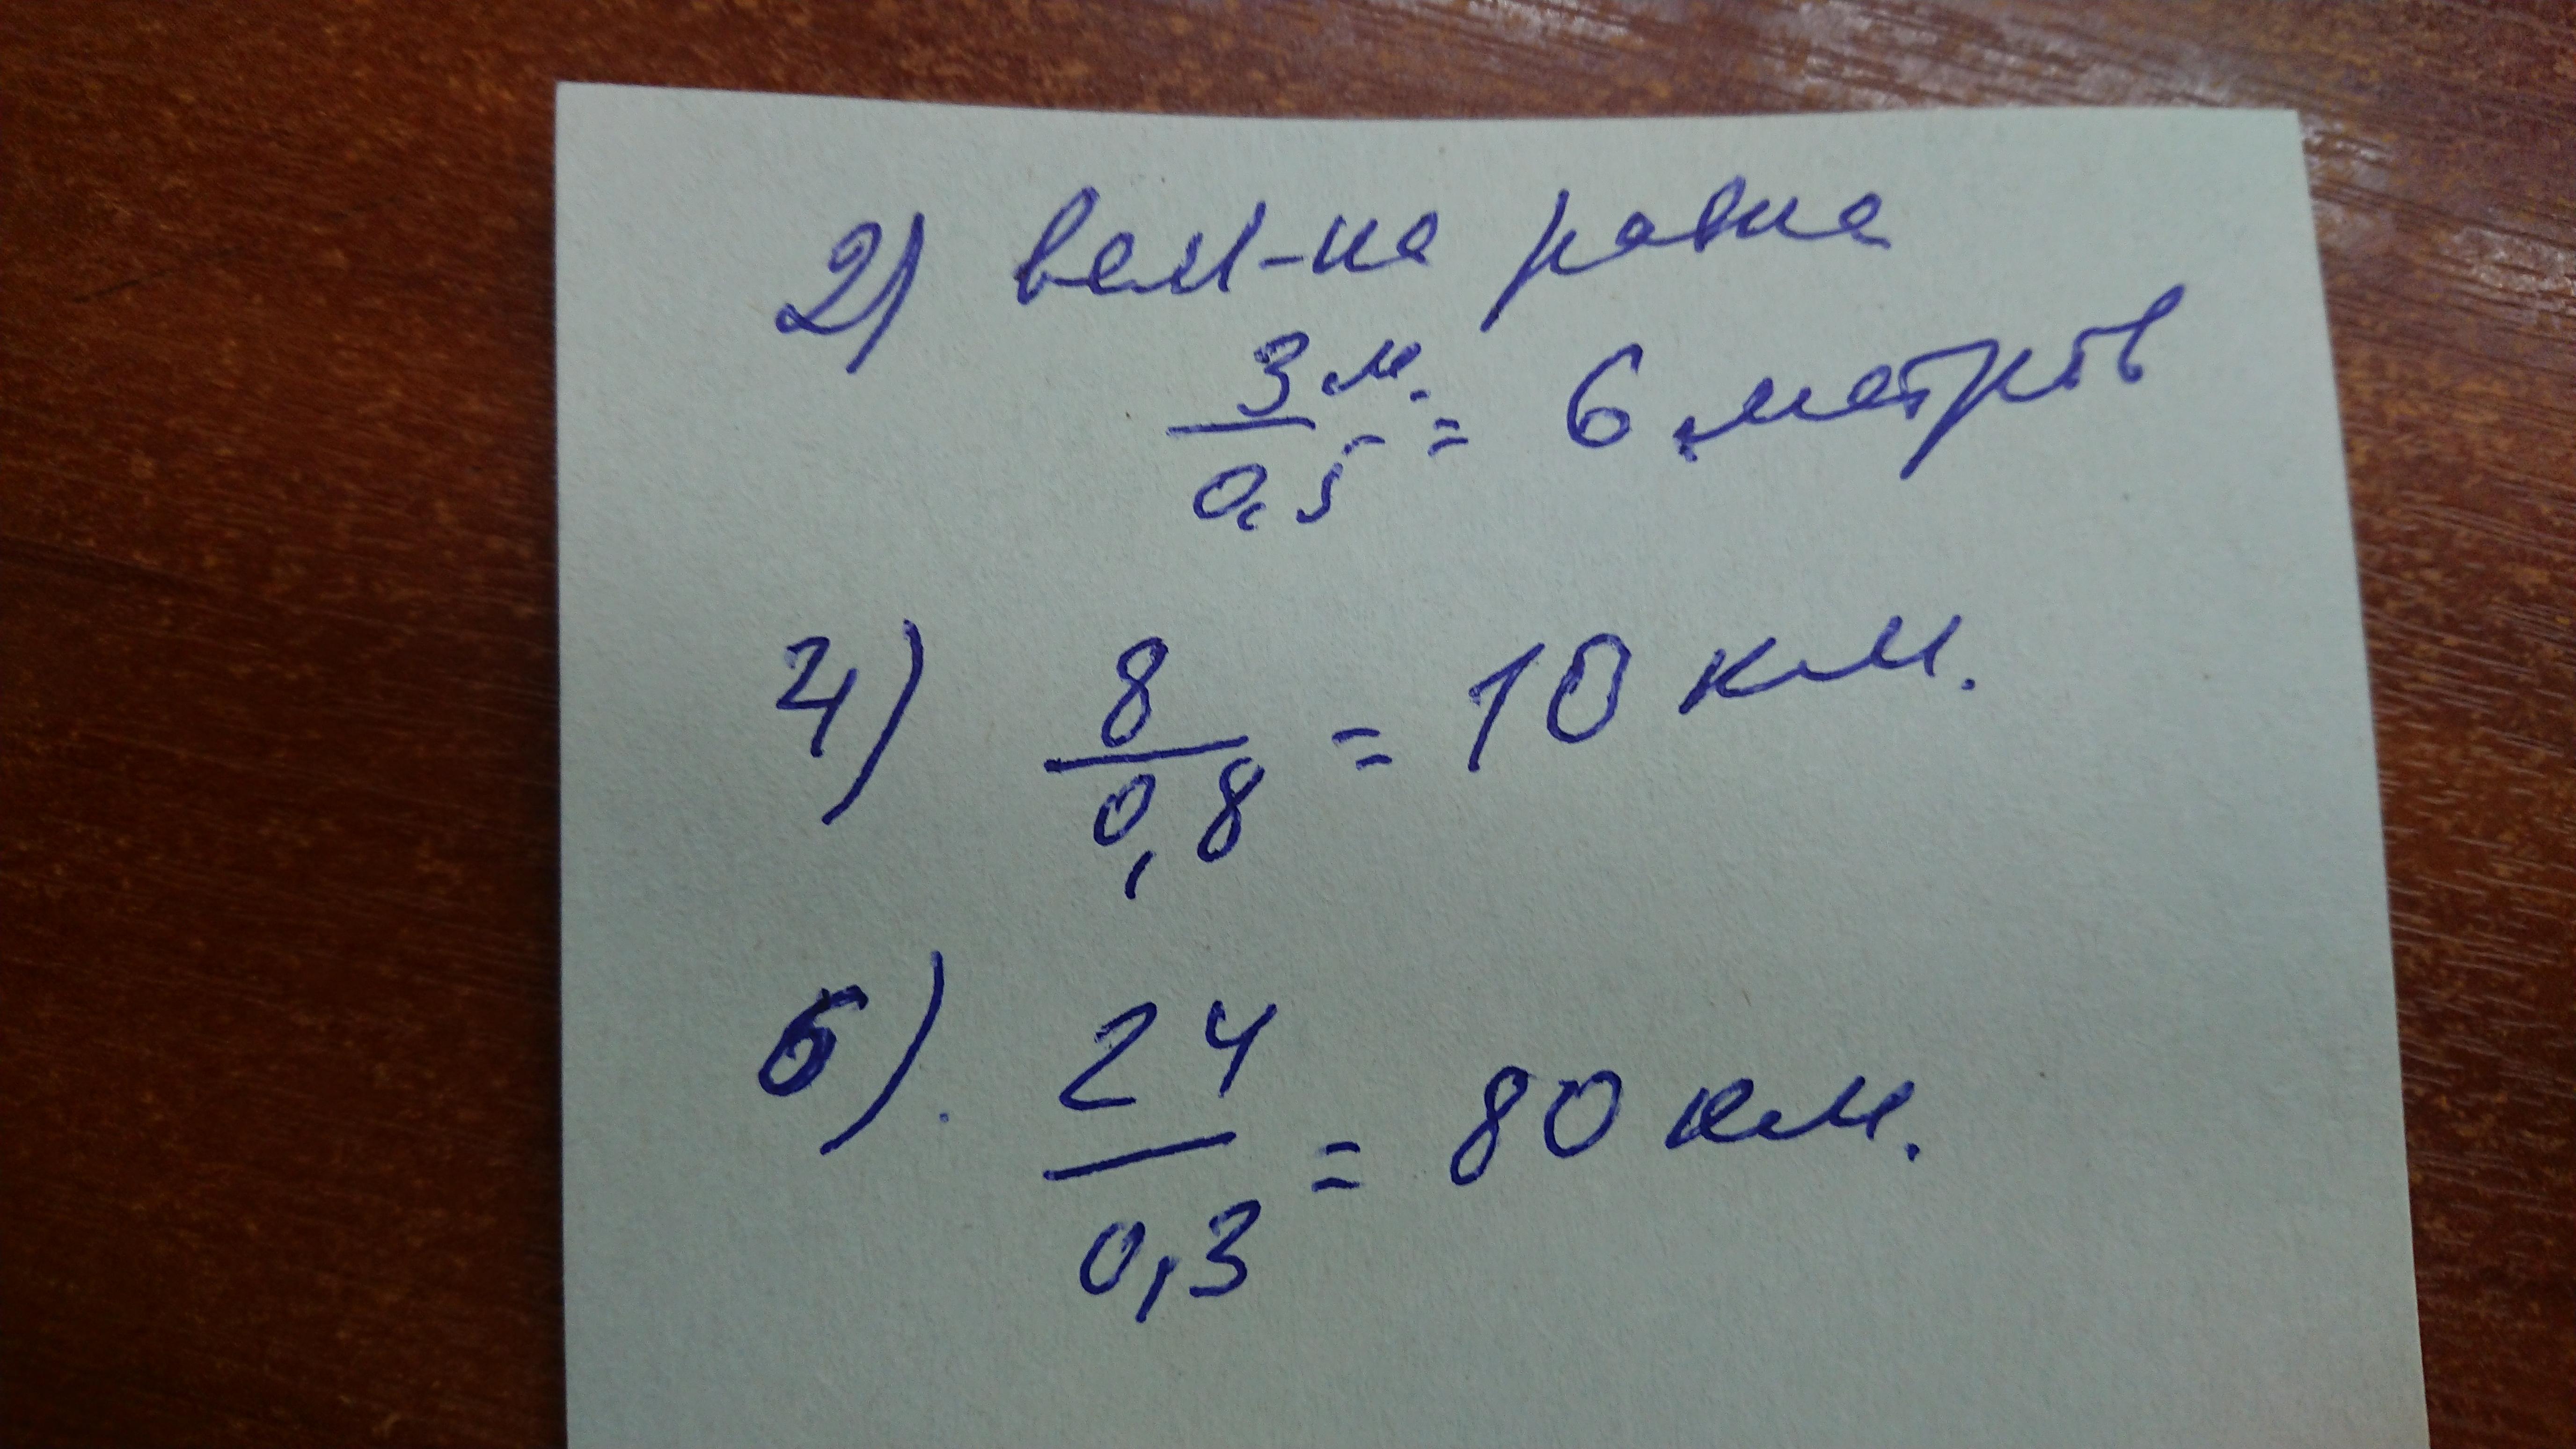 2) вел-на равна
3 м. / 0,5 = 6 метров
4) 8 / 0,8 = 10 км.
6). 24 / 0,3 = 80 км.